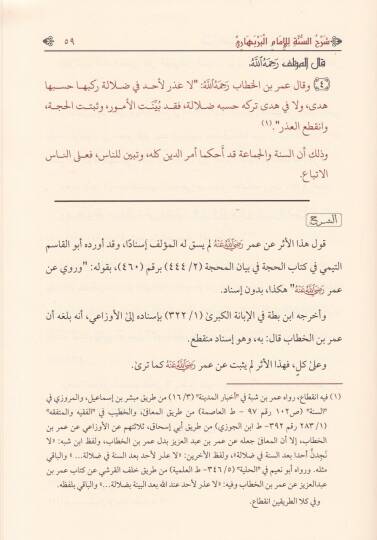 شَرْحُ السُّنَّةِ لِلإِمَامِ الْبَرْبَهَارِيِّ ٥٩
قال المؤلف رَحِمَهُ اللَّهُ:
(٤) وقال عمر بن الخطاب رَحِمَهُ اللَّهُ: "لا عذر لأحد في ضلالة ركبها حسبها
هدى، ولا في هدى تركه حسبه ضلالة، فقد بُيِّنَت الأمور، وثبتت الحجة،
وانقطع العذر". (١)
وذلك أن السنة والجماعة قد أحكما أمر الدين كله، وتبين للناس، فعلى الناس
الاتباع.
الشرح
قول هذا الأثر عن عمر رَضِيَ اللَّهُ عَنْهُ لم يسق له المؤلف إسنادًا، وقد أورده أبو القاسم
التيمي في كتاب الحجة في بيان المحجة (٢/ ٤٤٤) برقم (٤٦٠)، بقوله: "وروي عن
عمر رَضِيَ اللَّهُ عَنْهُ" هكذا، بدون إسناد.
وأخرجه ابن بطة في الإبانة الكبرى (١/ ٣٢٢) بإسناده إلى الأوزاعي، أنه بلغه أن
عمر بن الخطاب قال: به، وهو إسناد منقطع.
وعلى كلٍ، فهذا الأثر لم يثبت عن عمر رَضِيَ اللَّهُ عَنْهُ كما ترى.
(١) فيه انقطاع، رواه عمر بن شبة في "أخبار المدينة" (٣/ ١٦) من طريق مبشر بن إسماعيل، والمروزي في
"السنة" (ص١٠٢ رقم ٩٧ - ط العاصمة) من طريق المعافى، والخطيب في "الفقيه والمتفقه"
(١/ ٢٨٣ رقم ٣٩٢- ط ابن الجوزي) من طريق أبي إسحاق، ثلاثتهم عن الأوزاعي عن عمر بن
الخطاب، إلا أن المعافى جعله عن عمر بن عبد العزيز بدل عمر بن الخطاب، ولفظ ابن شبه: «لا
أحدا بعد السنة في ضلالة»، ولفظ الآخرين: «لا عذر لأحد بعد السنة في ضلالة...» والباقي
مثله. ورواه أبو نعيم في "الحلية" (٥/ ٣٤٦- ط العلمية) من طريق خلف القرشي عن كتاب عمر بن
عبدالعزيز عن عمر بن الخطاب وفيه: «لا عذر لأحد عند الله بعد البينة بضلالة...» والباقي بلفظه.
وفي كلا الطريقين انقطاع.